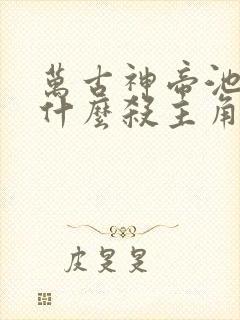 萬古神帝池
什麼殺主角
皮旻旻